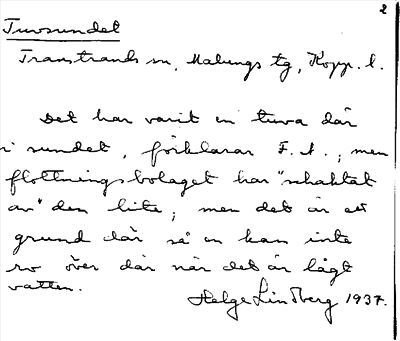 2
Tuvsundet
Transtrands sn, Malungs tg, Kopp. l.
Det har varit en tuva där
i sundet, förklarar F. A.; men
flottningsbolaget har "schaktat
av" den lite; men det är ett
grund där så en kan inte
ro över där när det är lågt
vatten.
Helge Lindberg 1937.